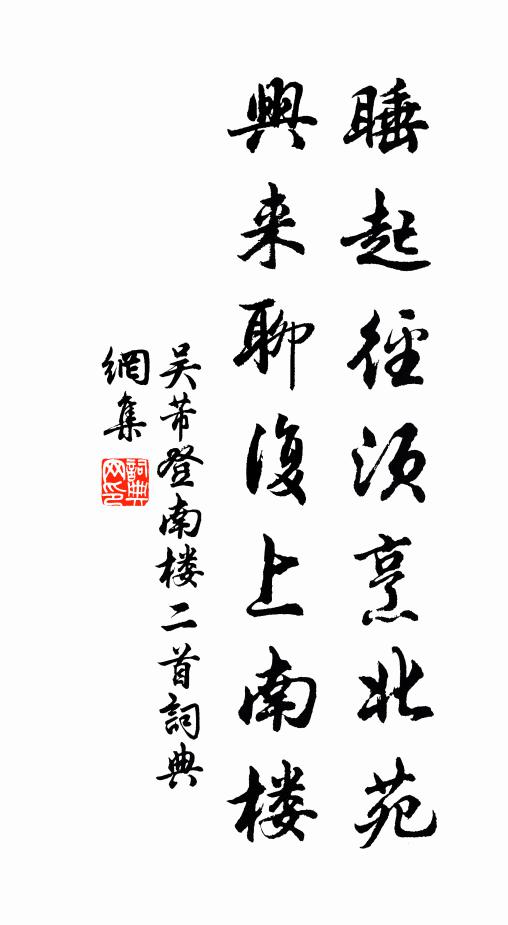 睡起徑須烹北苑
興来聊復上南楼
吴芾登南楼二首詞典
網集
詞典網印